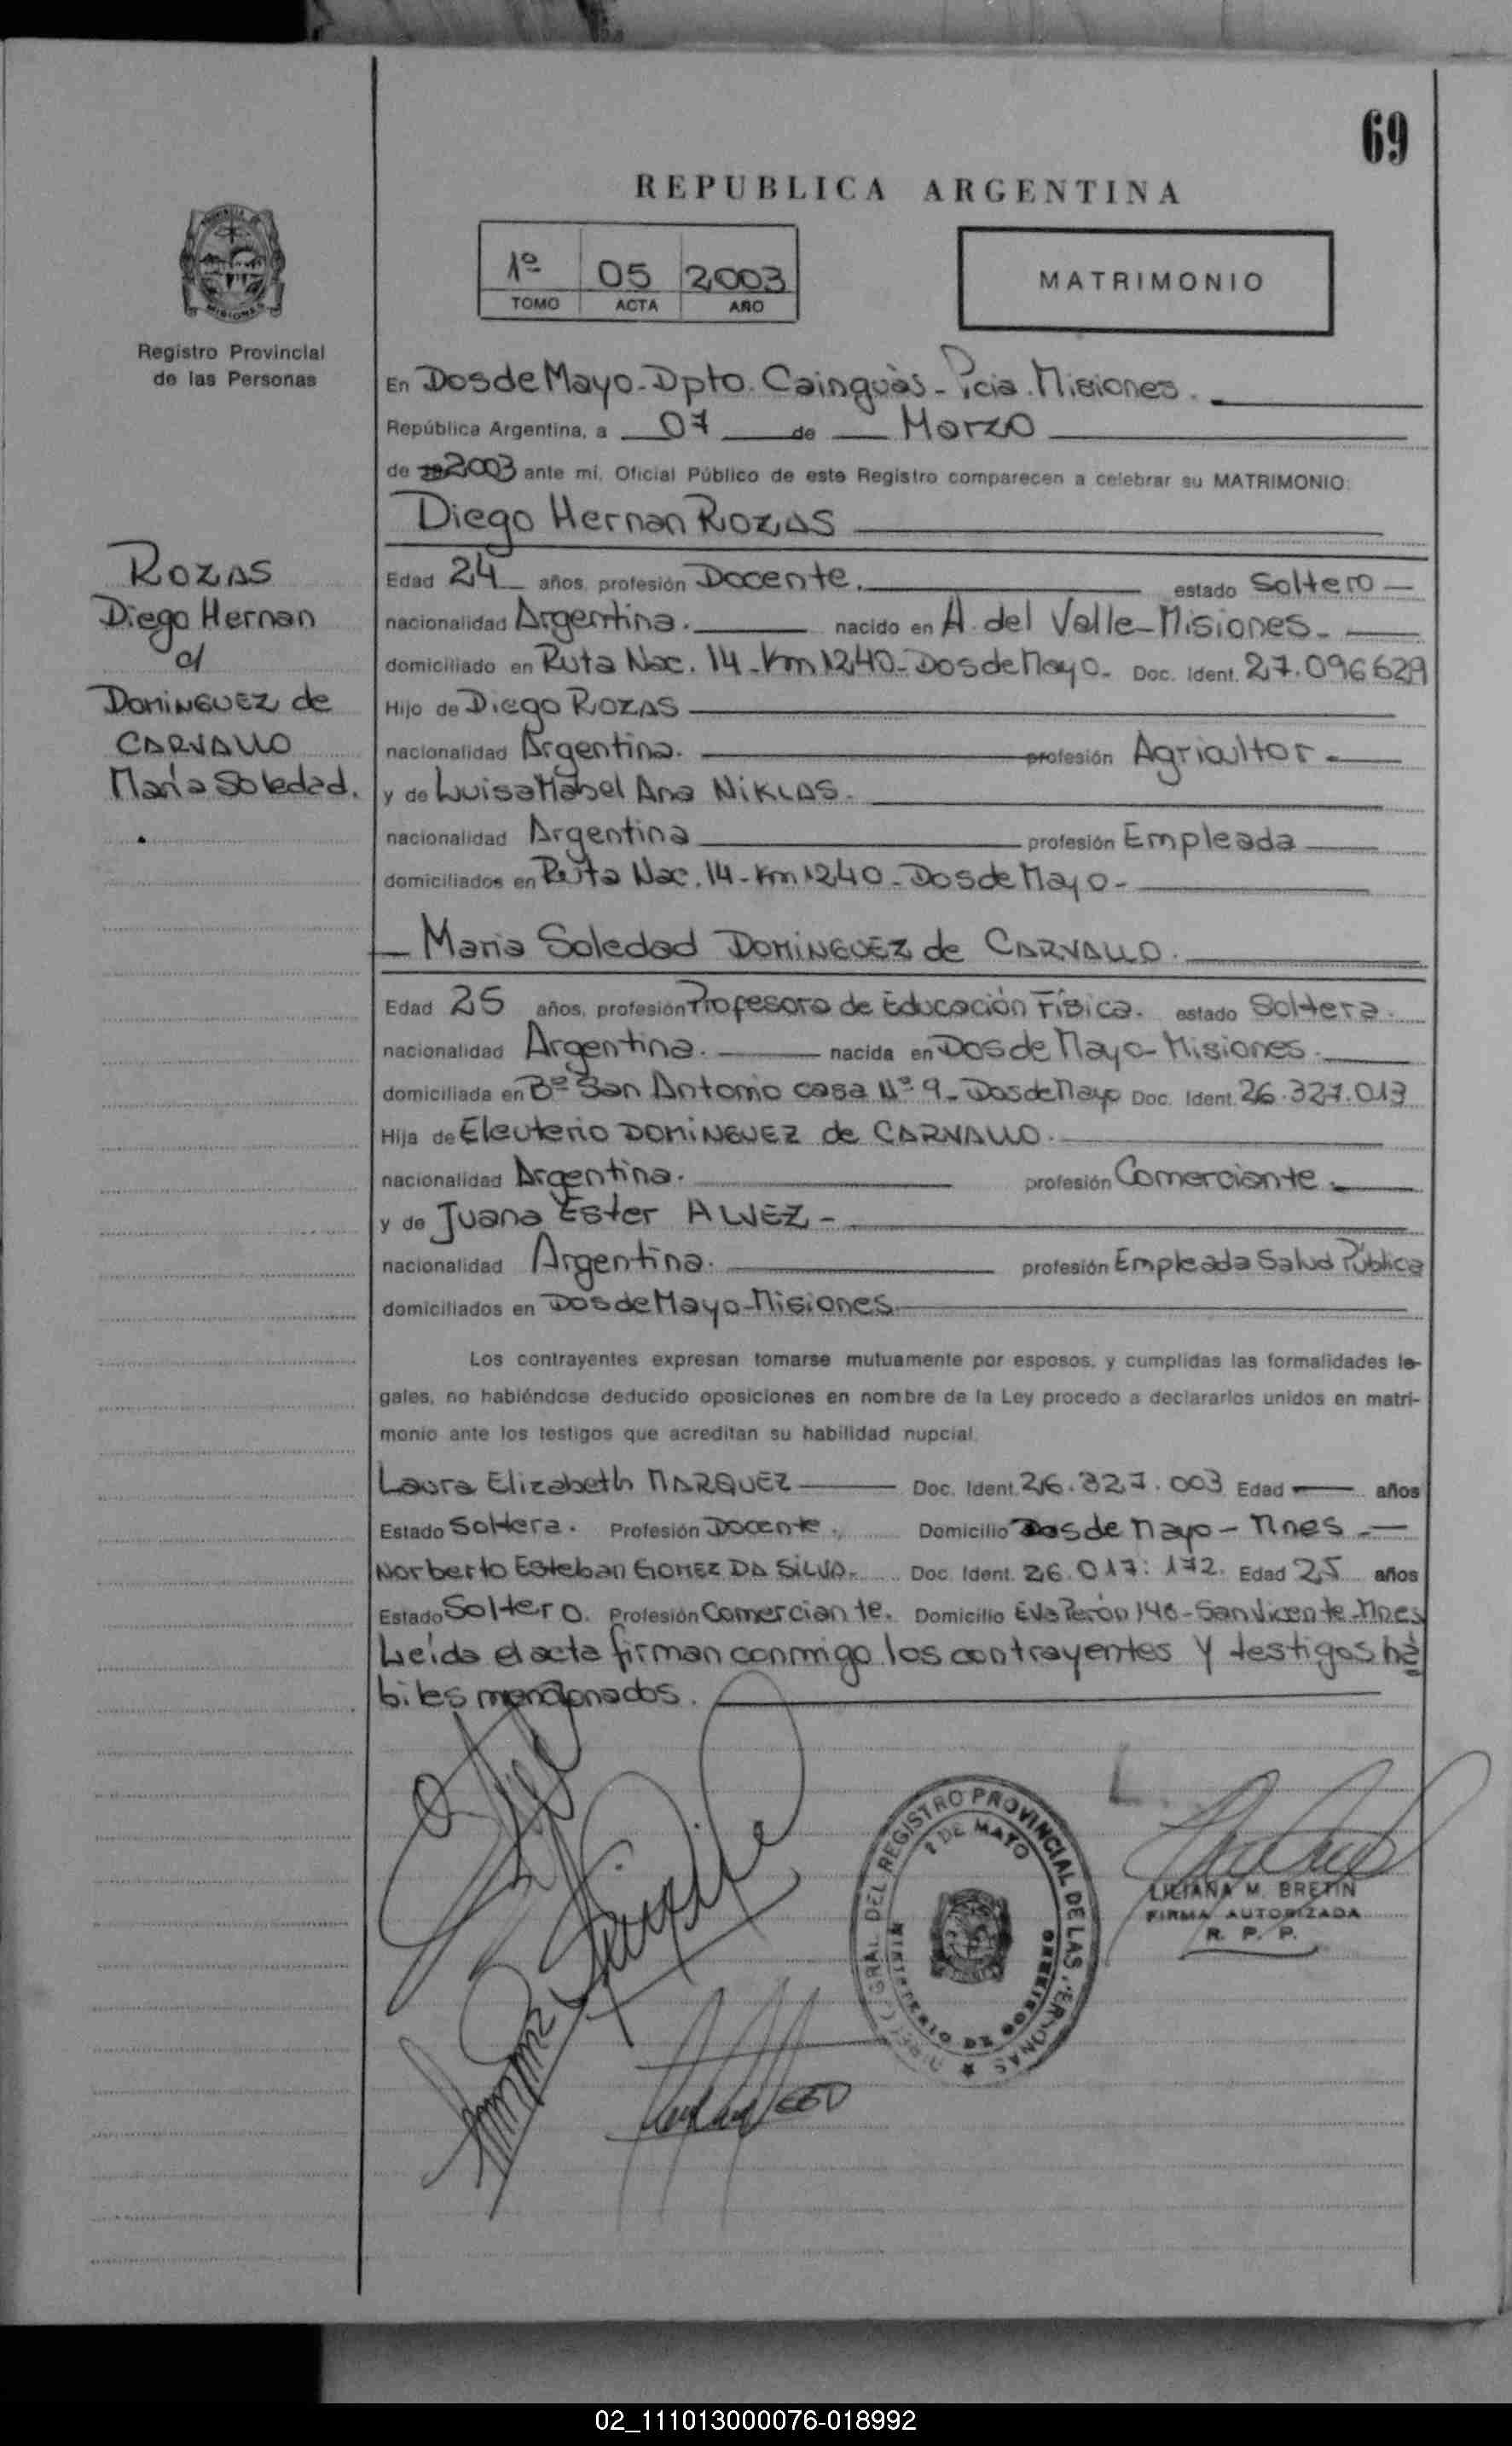 69
REPUBLICA ARGENTINA
1º 05 2003
TOMO ACTA AÑO
MATRIMONIO
Registro Provincial
de las Personas
En Dos de Mayo - Dpto. Cainguàs - Pcia. Misiones.
República Argentina, a 07 de Marzo
de 2003 ante mí, Oficial Público de este Registro comparecen a celebrar su MATRIMONIO:
Diego Hernan ROZAS
ROZAS
Diego Hernan
c/
DOMINGUEZ de
CARVALLO
Maria Soledad.
Edad 24 años, profesión Docente. estado Soltero
nacionalidad Argentina. nacido en A. del Valle - Misiones -
domiciliado en Ruta Nac. 14 - Km 1240 - Dos de Mayo - Doc. Ident. 27.096629
Hijo de Diego ROZAS
nacionalidad Argentina. profesión Agricultor -
y de Luisa Mabel Ana NIKLAS.
nacionalidad Argentina profesión Empleada
domiciliados en Ruta Nac. 14 - Km 1240 - Dos de Mayo -
Maria Soledad DOMINGUEZ de CARVALLO.
Edad 25 años, profesión Profesora de Educación Física. estado Soltera.
nacionalidad Argentina. nacida en Dos de Mayo - Misiones.
domiciliada en Bº San Antonio casa Nº 9 - Dos de Mayo Doc. Ident. 26.327.013
Hija de Eleuterio DOMINGUEZ de CARVALLO.
nacionalidad Argentina. profesión Comerciante.
y de Juana Ester ALVEZ -
nacionalidad Argentina. profesión Empleada Salud Pública
domiciliados en Dos de Mayo - Misiones
Los contrayentes expresan tomarse mutuamente por esposos, y cumplidas las formalidades le-
gales, no habiéndose deducido oposiciones en nombre de la Ley procedo a declararlos unidos en matri-
monio ante los testigos que acreditan su habilidad nupcial.
Laura Elizabeth MARQUEZ Doc. Ident. 26.327.003 Edad — años
Estado Soltera. Profesión Docente. Domicilio Dos de Mayo - Mnes -
Norberto Esteban GOMEZ DA SILVA. Doc. Ident. 26.017.172. Edad 25 años
Estado Soltero. Profesión Comerciante. Domicilio Eva Perón 146 - San Vicente - Mnes
Leída el acta firman conmigo los contrayentes y testigos há
biles mencionados.
DIREC. GRAL DEL REGISTRO PROVINCIAL DE LAS PERSONAS
2 DE MAYO
MINISTERIO DE GOBIERNO
LILIANA M. BRETIN
FIRMA AUTORIZADA
R. P. P.
02_111013000076-018992